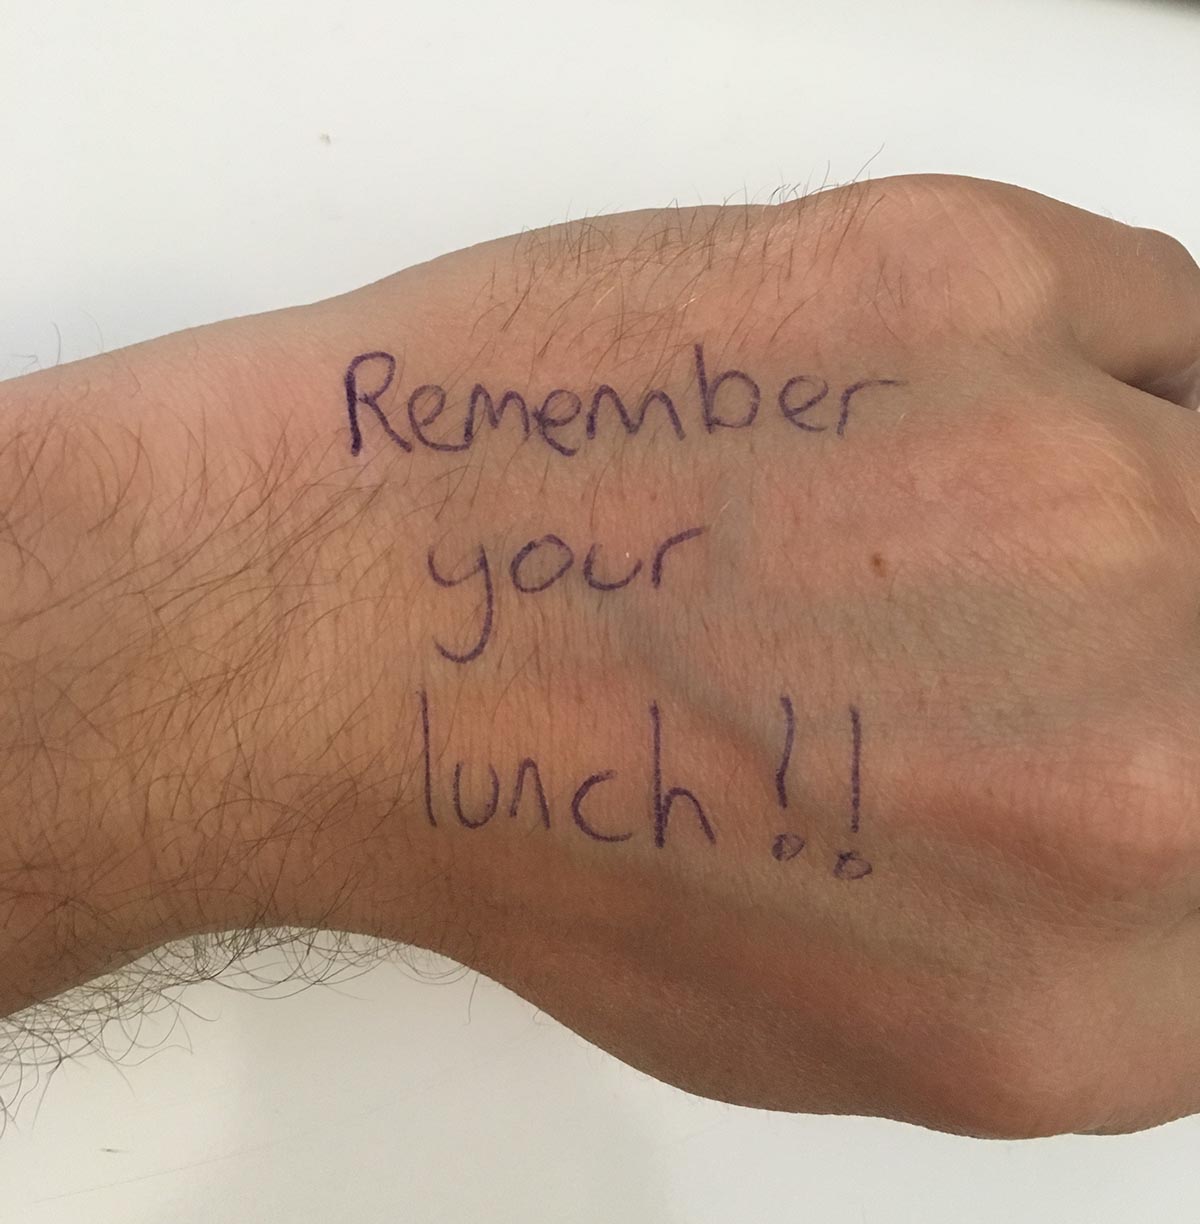 Remember
your
lunch!!